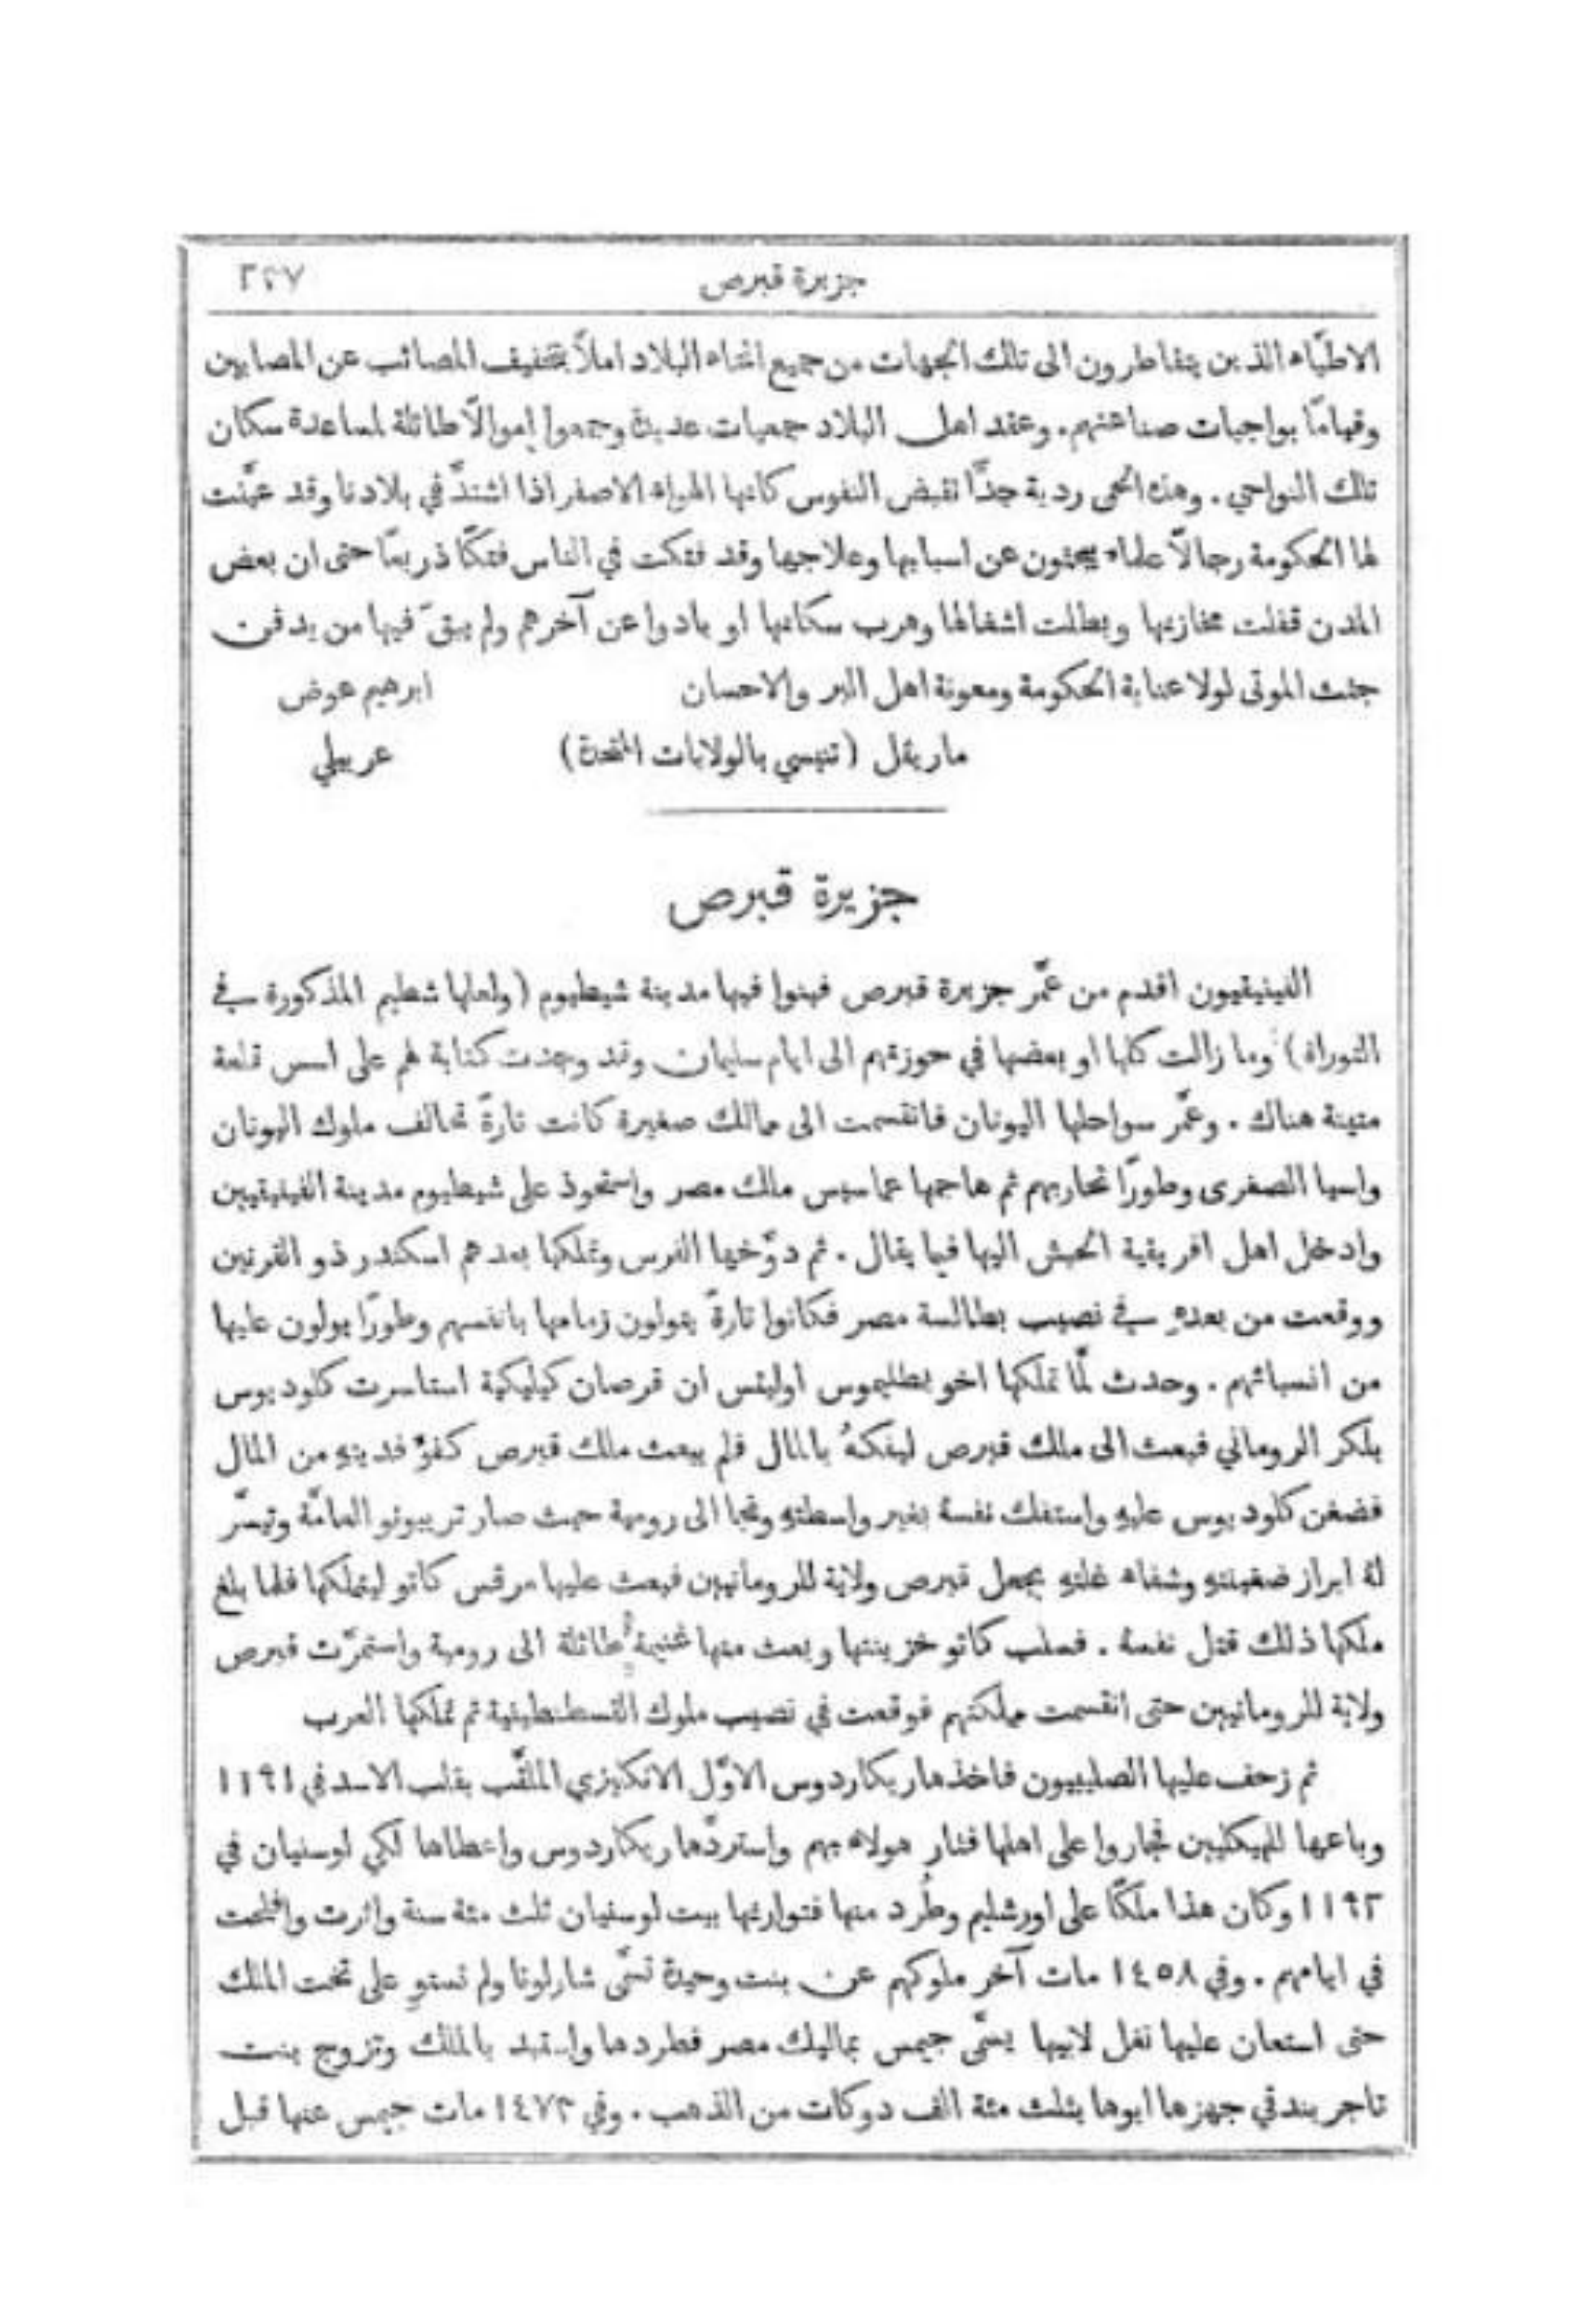 جزيرة قبرص ٢٢٧
الاطبّاء الذين يتقاطرون الى تلك الجهات من جميع انحاء البلاد املاً بتخفيف المصائب عن المصابين
وقيامًا بواجبات صناعتهم. وعقد اهل البلاد جمعيات عديدة وجمعوا اموالاً طائلة لمساعدة سكان
تلك النواحي. وهذه الحمى ردية جدًّا تقبض النفوس كانها الهواء الاصفر اذا اشتدَّ في بلادنا وقد عيَّنت
لها الحكومة رجالاً علماء يبحثون عن اسبابها وعلاجها وقد فتكت في الناس فتكًا ذريعًا حتى ان بعض
المدن قفلت مخازنها وبطلت اشغالها وهرب سكانها او بادوا عن آخرهم ولم يبقَ فيها من يدفن
جثث الموتى لولا عناية الحكومة ومعونة اهل البر والاحسان ابرهيم عوض
(تنيسي بالولايات المتحدة) عربيلي
جزيرة قبرص
الفينيقيون اقدم من عمَّر جزيرة قبرص فبنوا فيها مدينة شيطيوم (ولعلها شطيم المذكورة في
التوراة) وما زالت كلها او بعضها في حوزتهم الى ايام سليمان وقد وجدت كتابة لهم على اسس قلعة
متينة هناك. وعمَّر سواحلها اليونان فانقسمت الى ممالك صغيرة كانت تارةً تحالف ملوك اليونان
واسيا الصغرى وطورًا تحاربهم ثم هاجمها عماسيس مالك مصر واستحوذ على شيطيوم مدينة الفينيقيين
وادخل اهل افريقية الحبش اليها فيما يقال. ثم دوَّخها الفرس وتملكها بعدهم اسكندر ذو القرنين
ووقعت من بعدهِ في نصيب بطالسة مصر فكانوا تارةً يتولون زمامها بانفسهم وطورًا يولون عليها
من انسبائهم. وحدث لمَّا تملكها اخو بطليموس اوليتس ان قرصان كيليكية استاسرت كلوديوس
بلكر الروماني فبعث الى ملك قبرص ليفكهُ بالمال فلم يبعث ملك قبرص كفوَ فديتهِ من المال
فضغن كلوديوس عليهِ واستفك نفسهُ بغير واسطتهِ ونجا الى رومية حيث صار تريبونو العامَّة وتيسَّر
لهُ ابراز ضغينتهِ وشفاء غلتهِ بجعل قبرص ولاية للرومانيين فبعث عليها مرقس كاتو ليتملكها فلما بلغ
ملكها ذلك قتل نفسهُ. فسلب كاتو خزينتها وبعث منها غنيمة طائلة الى رومية واستمرَّت قبرص
ولاية للرومانيين حتى انقسمت مملكتهم فوقعت في نصيب ملوك القسطنطينية ثم تملكها العرب
ثم زحف عليها الصليبيون فاخذها ريكاردوس الاوَّل الانكليزي الملقَّب بقلب الاسد في ١١٩١
وباعها للهيكليين فجاروا على اهلها فثار هولاء بهم واستردَّها ريكاردوس واعطاها لكي لوسنيان في
١١٩٢ وكان هذا ملكًا على اورشليم وطُرد منها فتوارثها بيت لوسنيان ثلث مئة سنة واثرت وافلحت
في ايامهم. وفي ١٤٥٨ مات آخر ملوكهم عن بنت وحيدة تسمَّى شارلوتا ولم تستوِ على تخت الملك
حتى استعان عليها نغل لابيها يسمَّى جيمس بماليك مصر فطردها واستبد بالملك وتزوج بنت
تاجر بندقي جهزها ابوها بثلث مئة الف دوكات من الذهب. وفي ١٤٧٣ مات جيمس عنها قبل